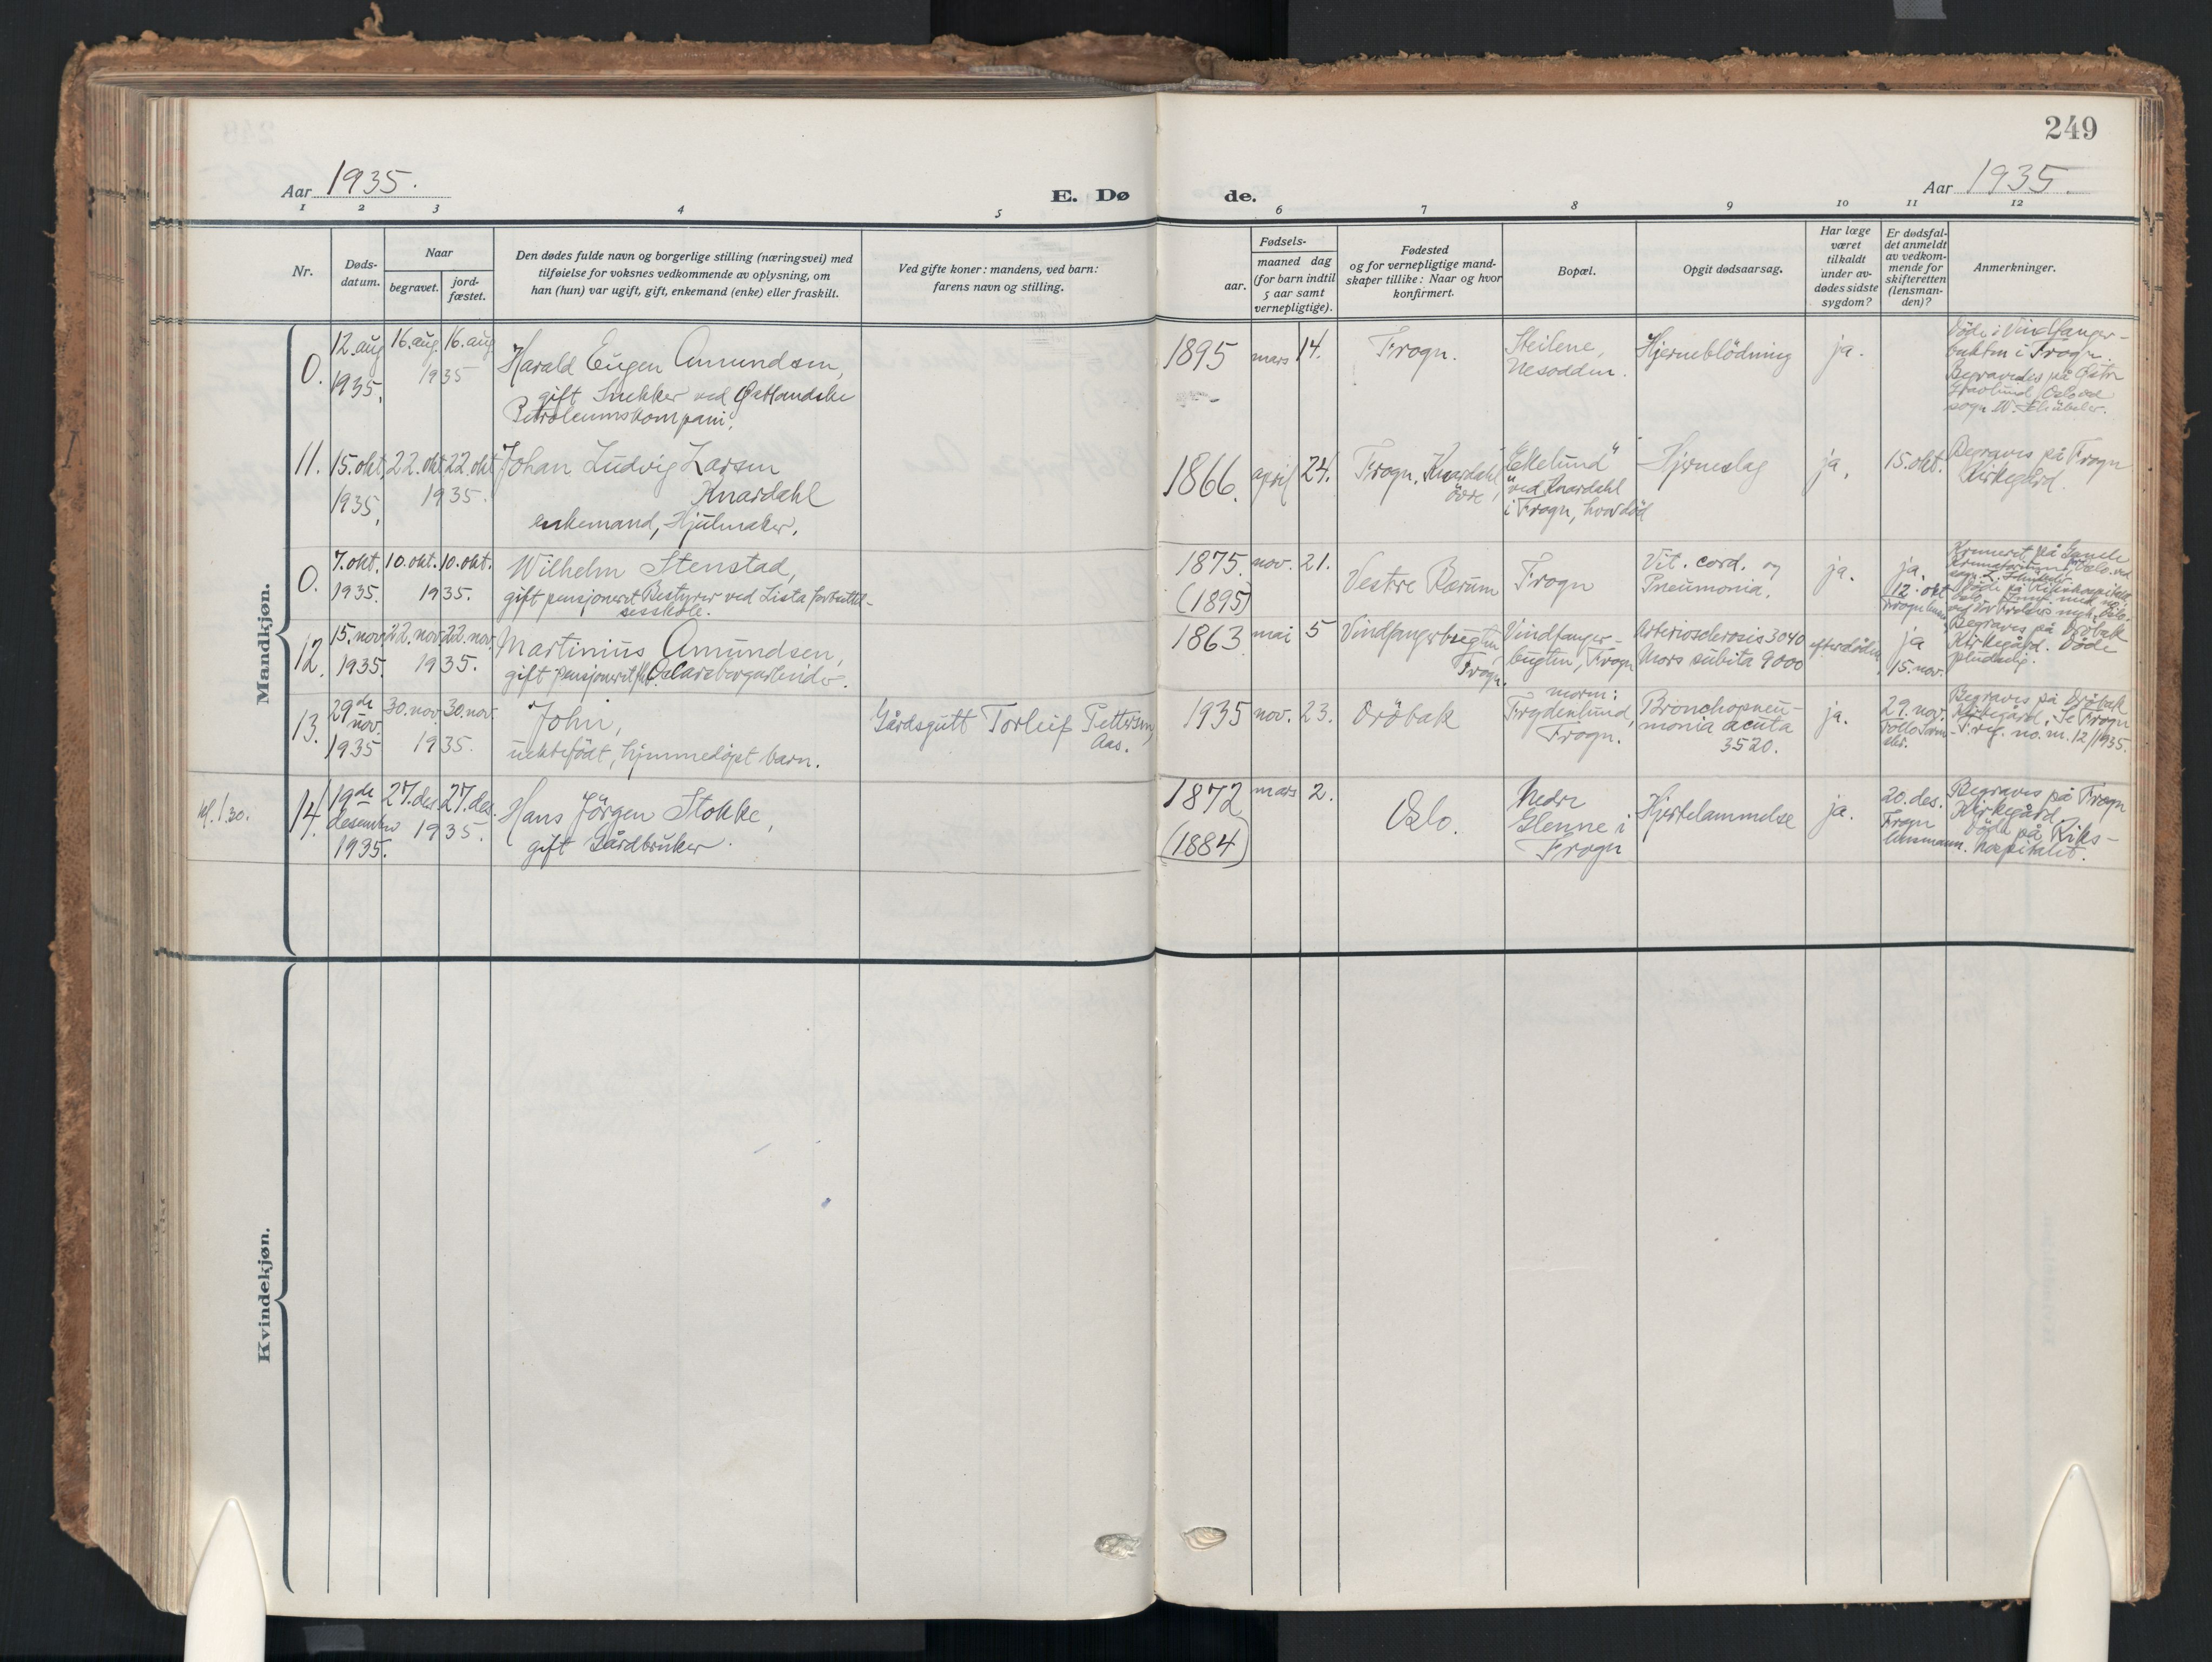 249
Aar 1935.
E. Dø
de.
Aar 1935.
1 2 3 4 5 6 7 8 9 10 11 12
Nr.
Døds-
datum.
Naar
begravet.
jord-
fæstet.
Den dødes fulde navn og borgerlige stilling (næringsvei) med
tilføielse for voksnes vedkommende av oplysning, om
han (hun) var ugift, gift, enkemand (enke) eller fraskilt.
Ved gifte koner: mandens, ved barn:
farens navn og stilling.
Fødsels-
aar.
maaned dag
(for barn indtil
5 aar samt
vernepligtige).
Fødested
og for vernepligtige mand-
skaper tillike: Naar og hvor
konfirmert.
Bopæl.
Opgit dødsaarsag.
Har læge
været
tilkaldt
under av-
dødes sidste
sygdom?
Er dødsfal-
det anmeldt
av vedkom-
mende for
skifteretten
(lensman-
den)?
Anmerkninger.
Mandkjøn.
0.
12. aug
1935.
16. aug. 16. aug
1935
Harald Eugen Amundsen,
gift Snekker ved Østlandske
Petroleumskompani.
1895 mars 14.
Frogn.
Steilene,
Nesodden.
Hjerneblödning
ja.
Döde i Vindfanger-
bukten i Frogn.
Begravedes på Østre
Gravlund, Oslo ved
sogn. W. Schübeler.
11.
15. okt.
1935.
22. okt 22. okt
1935.
Johan Ludvig Larsen
Knardahl
enkemand, Hjulmaker.
1866. april 24.
Frogn, Knardahl
övre,
"Ekelund"
ved Knardahl
i Frogn, hvor död
Hjerneslag
ja.
15. okt.
Begraves på Frogn
Kirkegård.
0.
7. okt.
1935.
10. okt. 10. okt.
1935.
Wilhelm Stenstad,
gift pensjoneret Bestyrer ved Lista forbedrel-
sesskole.
1875. nov. 21.
(1895)
Vestre Bærum
Frogn
Vit. cord. og
Pneumonia.
ja.
ja.
12. okt
Frogn
Kremeret på Gamle
Krematorium, Oslo ved
sogn.
Döde på Rikshospitalet
Oslo.
12.
15. nov.
1935.
22. nov. 22. nov.
1935.
Martinius Amundsen,
gift pensjoneret Oscarsborgarbeider.
1863 mai 5
Vindfangerbugten
Frogn.
Vindfanger-
bugten, Frogn
Arteriosclerosis 3040
Mors subita 9000
efter döden
ja
15. nov.
Begraves på Dröbak
Kirkegård. Döde
pludselig.
13.
29de
nov.
1935
30. nov. 30. nov.
1935.
John,
uektefödt, hjemmedöpt barn.
Gårdsgutt Torleif Pettersen,
Aas.
1935 nov. 23.
Dröbak
morm:
Frydenlund,
Frogn.
Bronchopneu-
monia acuta
3520.
ja.
29. nov.
Follo Soren-
skr.
Begraves på Dröbak
Kirkegård. Se Frogn
F. reg. no. m. 12/1935.
kl. 1.30.
14.
19de
desember
1935.
27. des. 27. des.
1935.
Hans Jörgen Stokke,
gift Gårdbruker.
1872 mars 2.
(1884)
Oslo.
Nedre
Glenne i
Frogn
Hjertelammelse
ja.
20. des.
Frogn
lensmann.
Begraves på Frogn
Kirkegård.
Döde på Riks-
hospitalet.
Kvindekjøn.